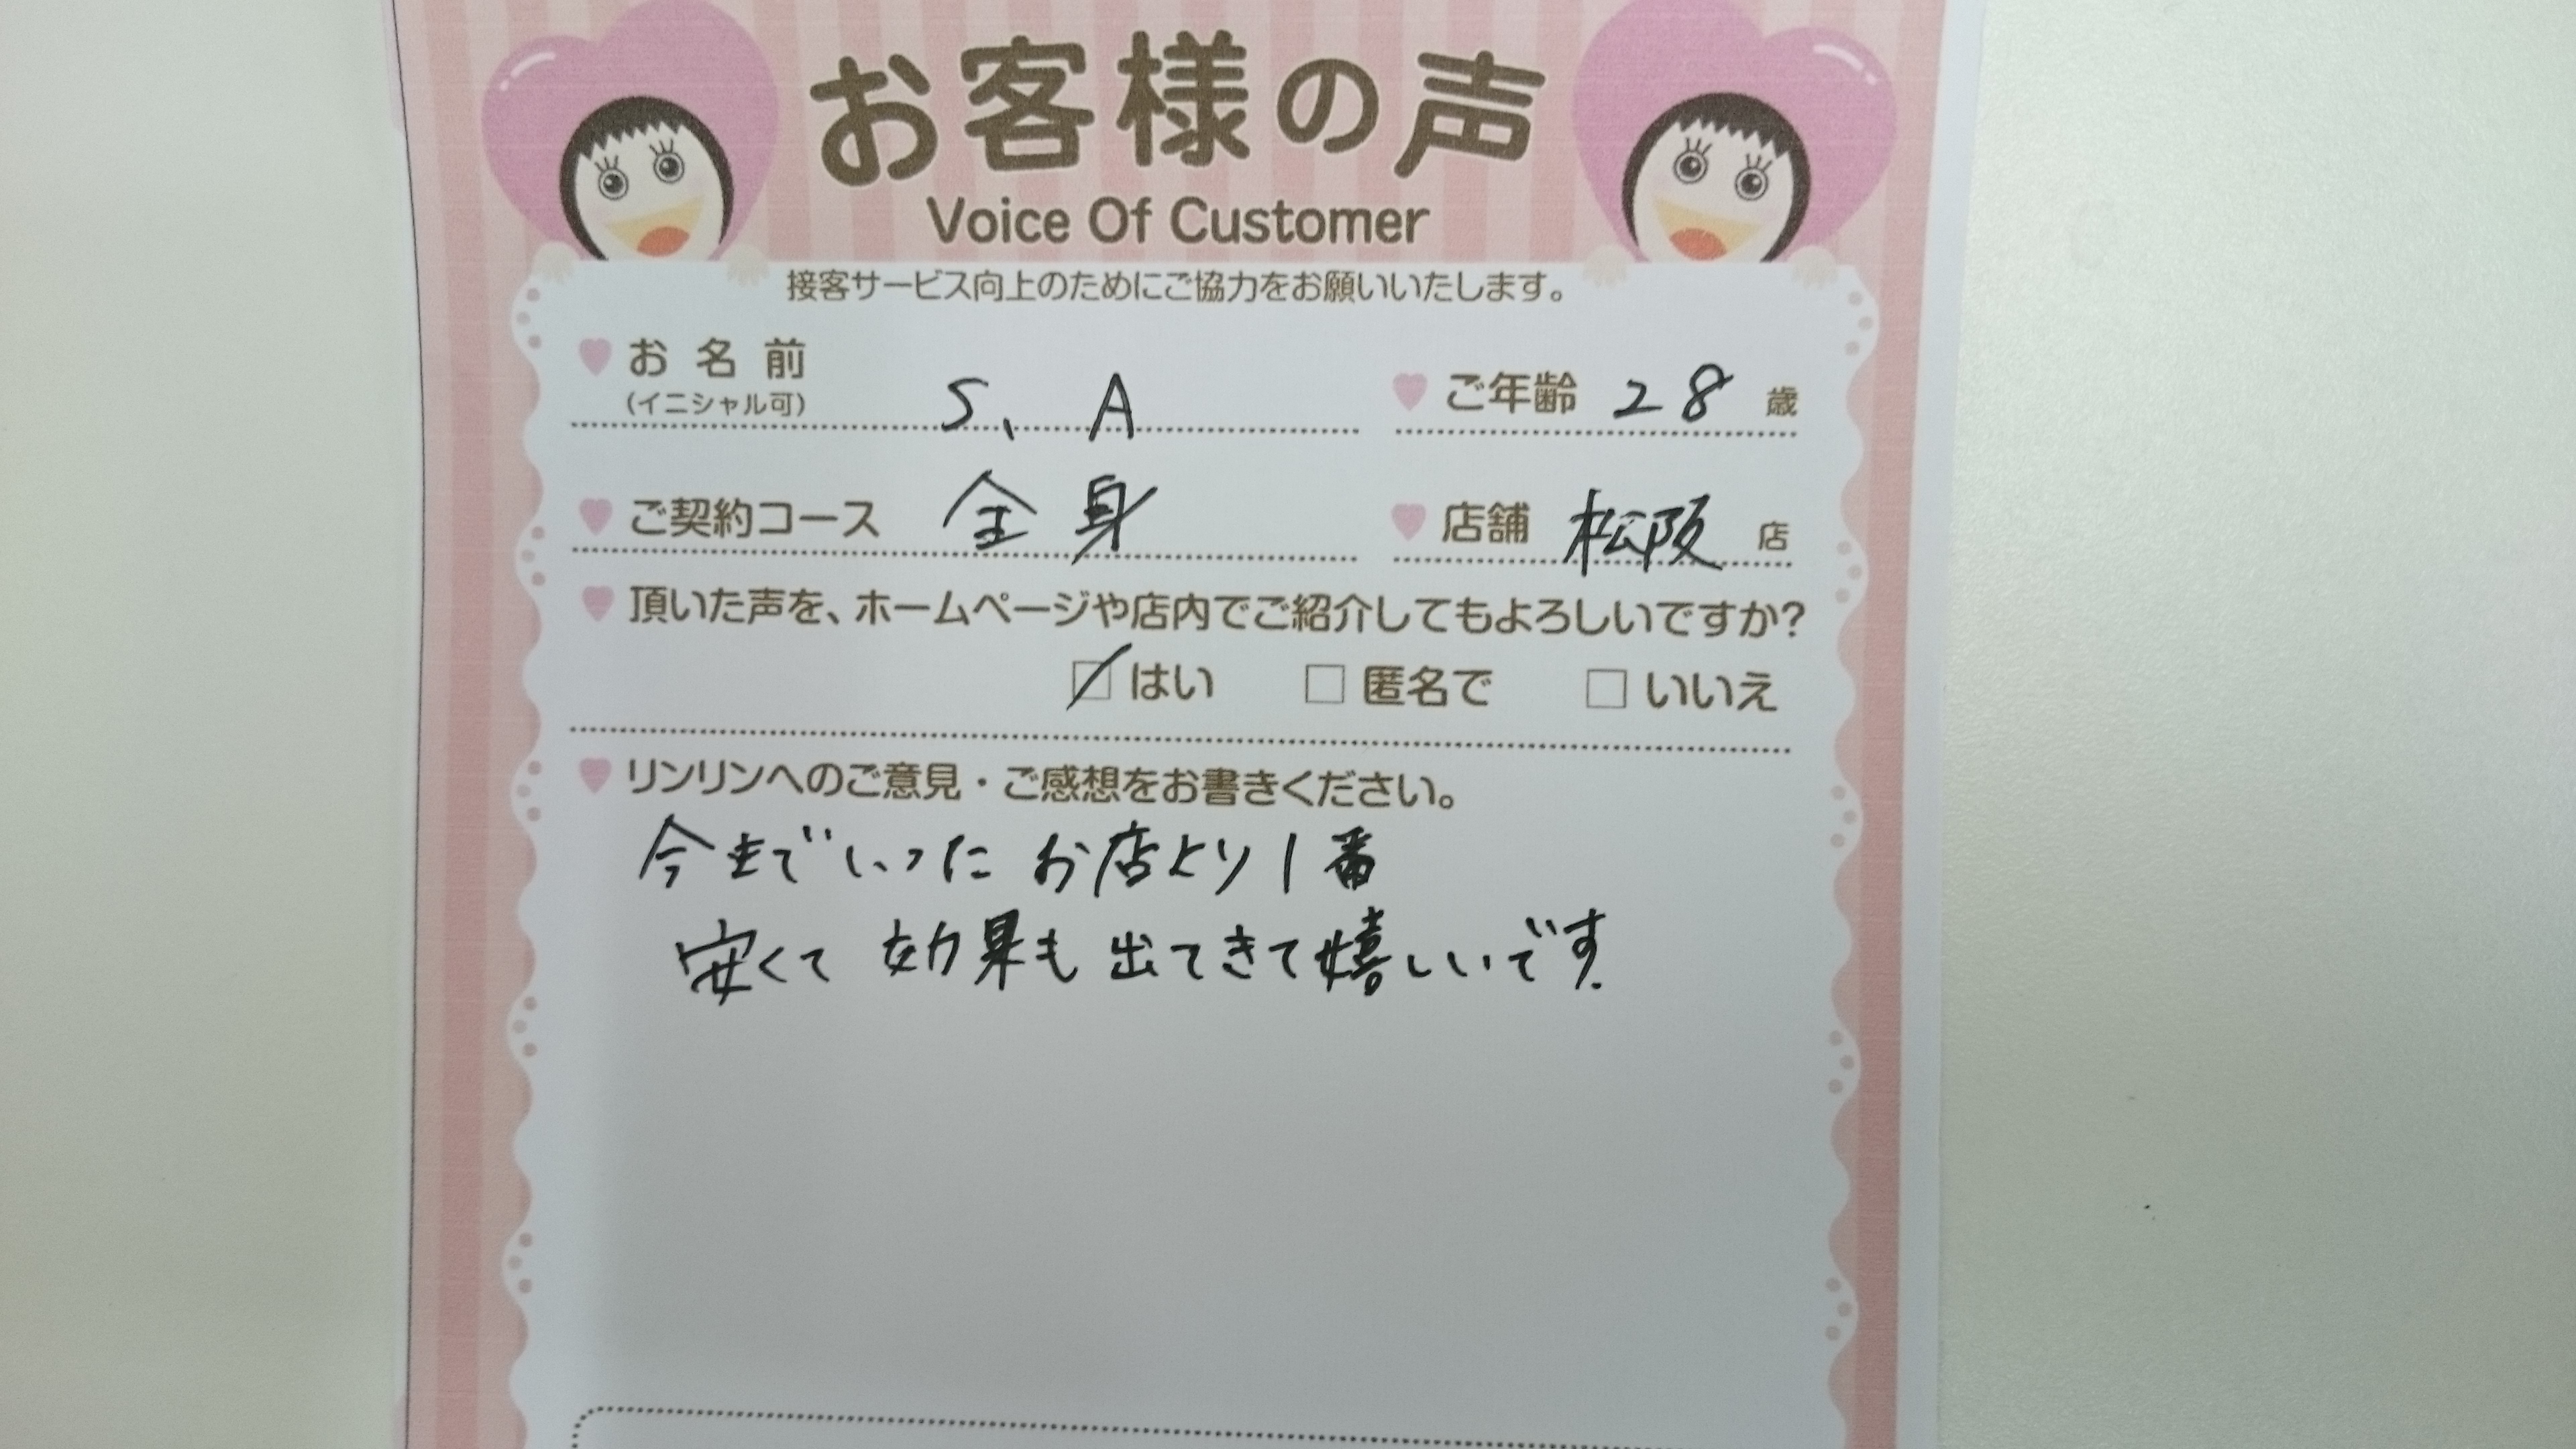 お客様の声
Voice Of Customer
接客サービス向上のためにご協力をお願いいたします。
お名前 S、A ご年齢 28 歳
(イニシャル可)
ご契約コース 全身 店舗 松阪 店
頂いた声を、ホームページや店内でご紹介してもよろしいですか?
はい 匿名で いいえ
リンリンへのご意見・ご感想をお書きください。
今までいったお店より1番
安くて効果も出てきて嬉しいです.